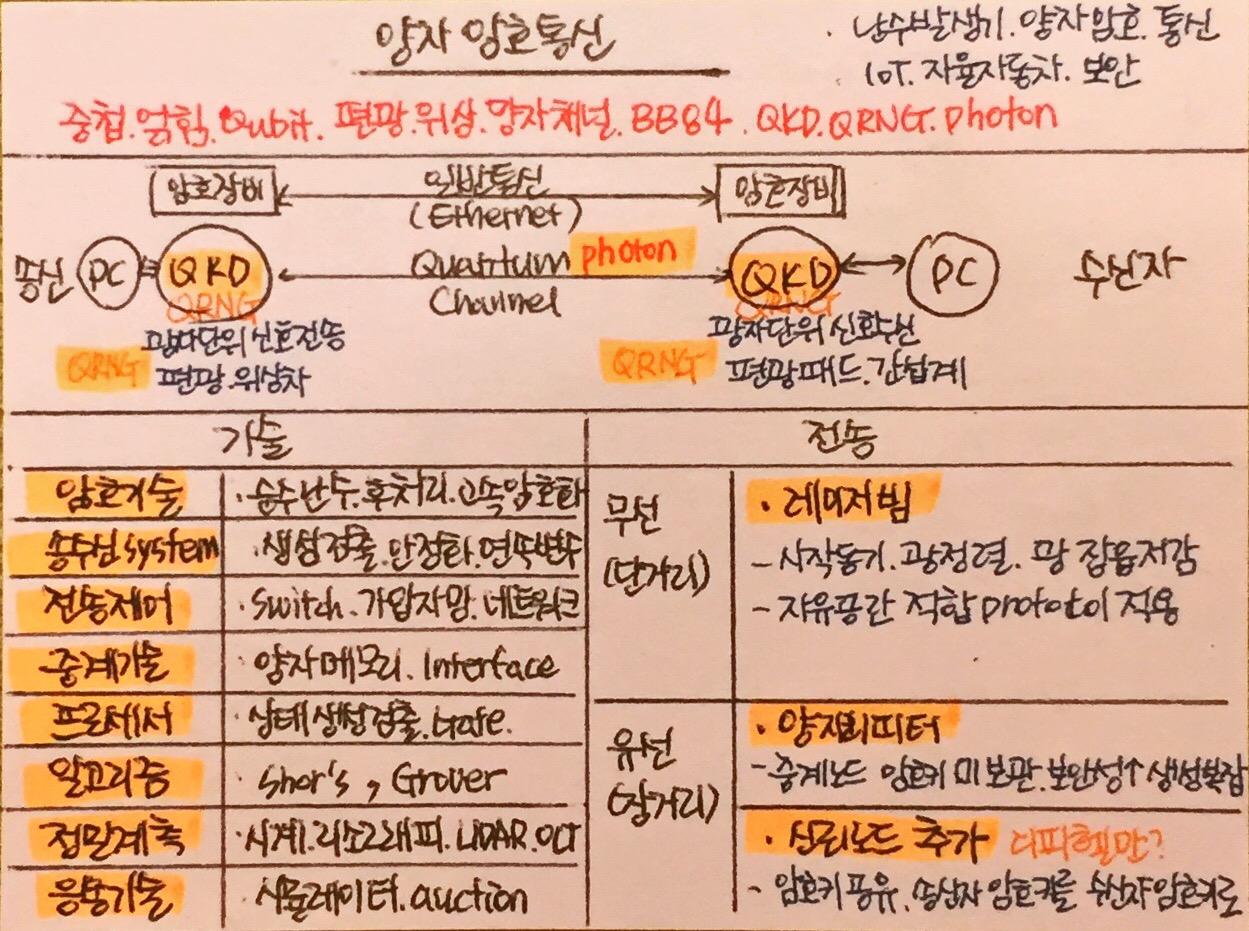 양자 암호통신
· 난수발생기. 양자암호. 통신
IoT. 자율자동차. 보안
중첩. 얽힘. Qubit. 편광. 위상. 양자채널. BB84. QKD. QRNG. photon
암호장비
일반통신
(Ethernet)
암호장비
송신
PC
QKD
QRNG
Quantum photon
Channel
QKD
QRNG
PC
수신자
광자단위 신호전송
QRNG
편광. 위상차
광자단위 신호수신
QRNG
편광패드. 간섭계
기술
전송
암호기술
· 순수난수. 후처리. 고속암호화
송수신 system
· 생성검출. 안정화. 연속변수
전송제어
· Switch. 가입자망. 네트워크
중계기술
· 양자메모리. Interface
프로세서
· 상태생성검출. Gate.
알고리즘
· Shor's, Grover
정밀계측
· 시계. 리소그래피. LIDAR. OCT
응용기술
· 시뮬레이터. auction
무선
(단거리)
· 레이저빔
- 시각동기. 광정렬. 광 잡음저감
- 자유공간 적합 protocol 적용
유선
(장거리)
· 양자리피터
- 중계노드 암호키 미보관. 보안성↑ 생성복잡
· 신뢰노드 추가 디피헬만?
- 암호키 공유. 송신자 암호키를 수신자 암호키로